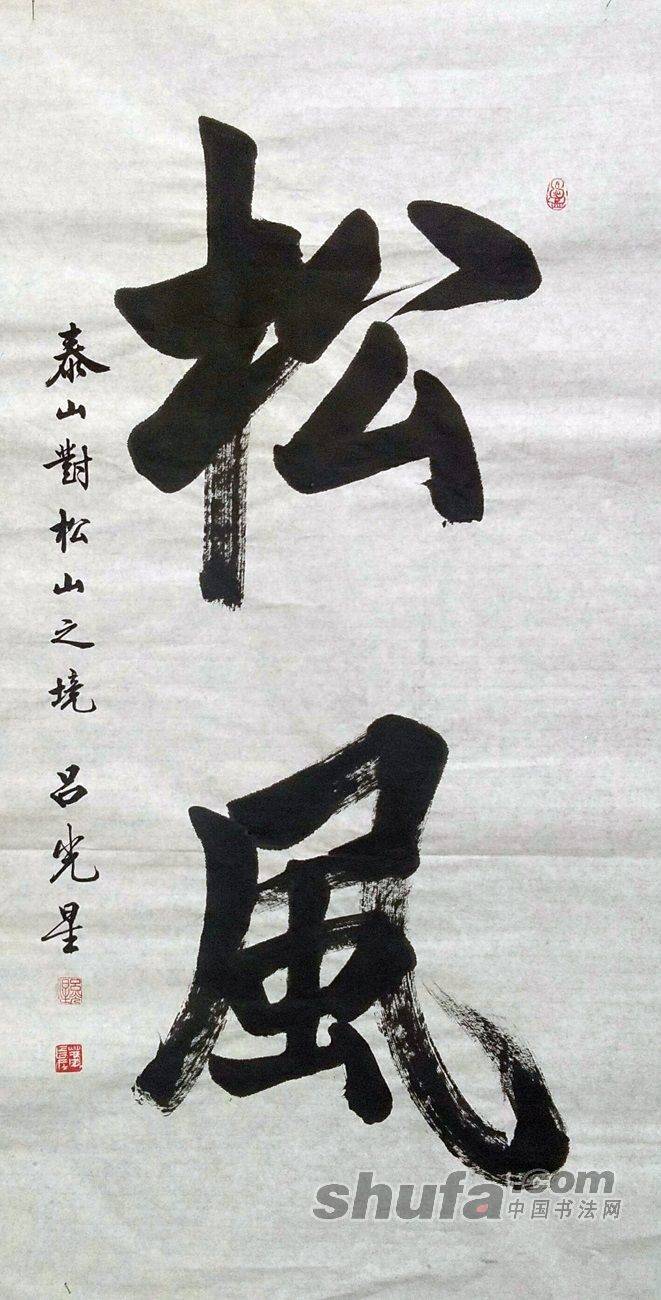 松風
泰山對松山之境 吕光星
shufa.com
中国书法网